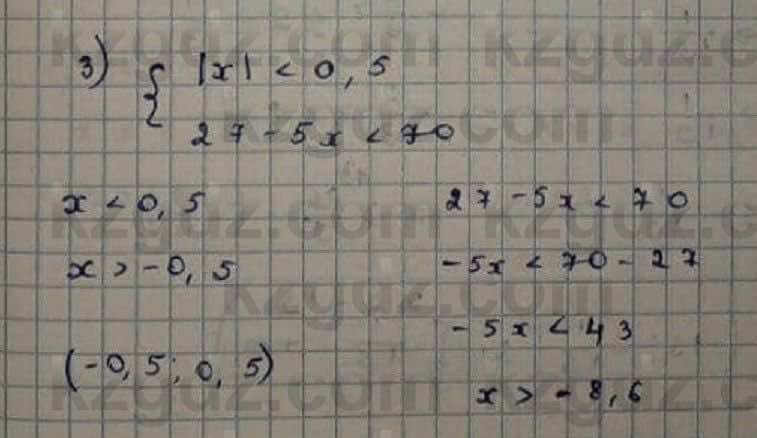 3) { |x| < 0,5
27 - 5x < 70
x < 0,5
x > -0,5
(-0,5; 0,5)
27 - 5x < 70
-5x < 70 - 27
-5x < 43
x > -8,6
kzgdz.com kzgdz.com
kzgdz.com
kzgdz.com kzgdz.com
kzgdz.com
kzgdz.com kzgdz.com